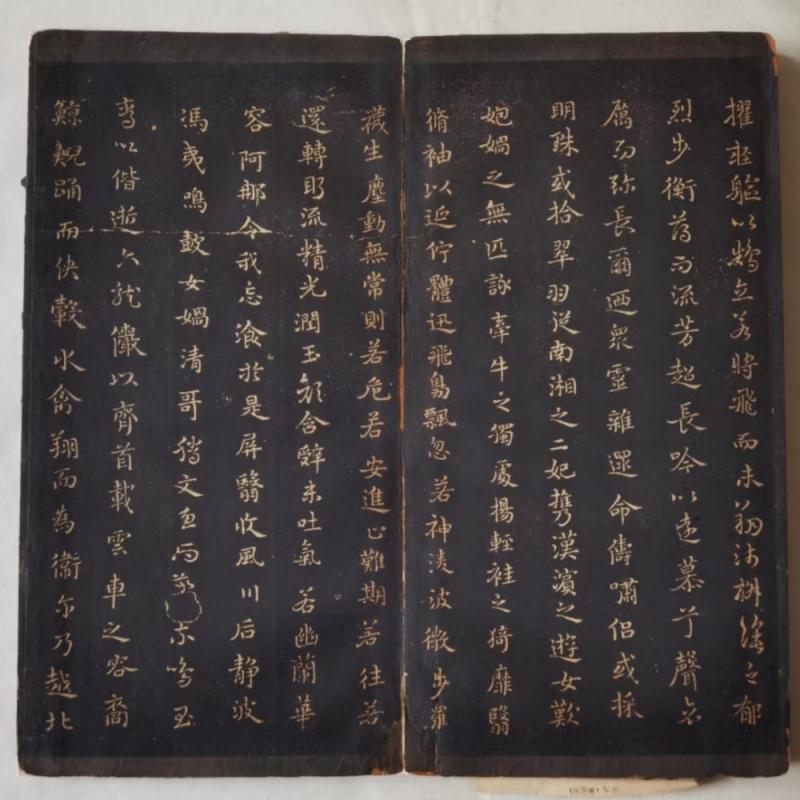 擢輕軀以鶴立若將飛而未翔踐椒塗之郁
烈步衡薄而流芳超長吟以遠慕兮聲哀
厲而弥長爾迺衆靈雜遝命儔嘯侶或採
明珠或拾翠羽從南湘之二妃攜漢濱之遊女歎
媧之無匹詠牽牛之獨處揚輕袿之猗靡翳
脩袖以延佇體迅飛鳧飄忽若神淩波微步羅
襪生塵動無常則若危若安進止難期若往若
還轉眄流精光潤玉顏含辭未吐氣若幽蘭華
容阿那令我忘飡於是屏翳收風川后静波
馮夷鳴鼓女媧清哥騰文魚而警乘鳴玉
鸞以偕逝六龍儼以齊首載雲車之容裔
鯨鯢踊而俠轂水禽翔而為衛尓乃越北